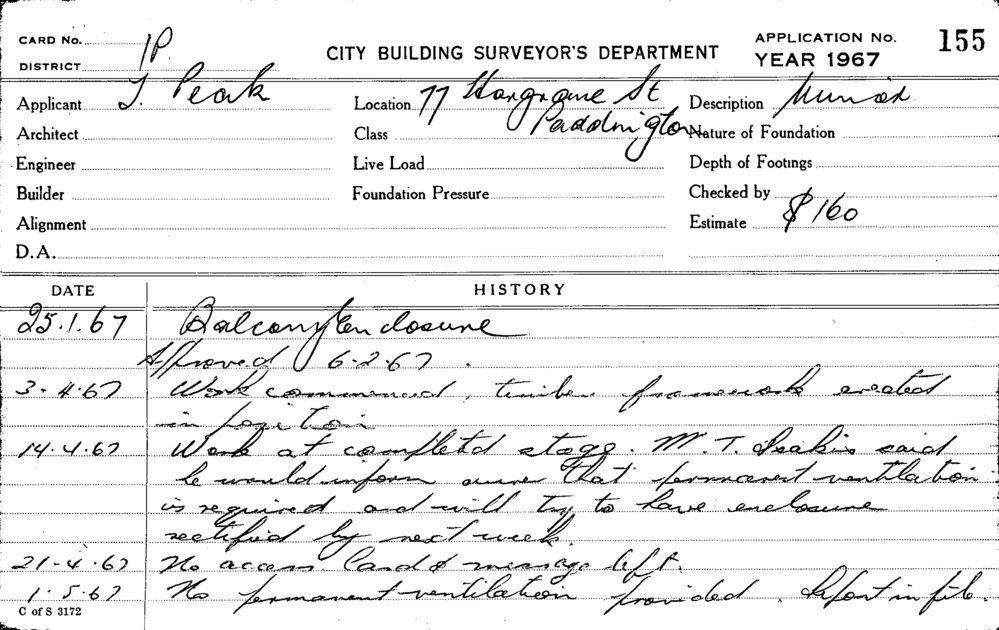 CARD No. 1P.
DISTRICT
CITY BUILDING SURVEYOR'S DEPARTMENT
APPLICATION No. 155
YEAR 1967
Applicant J. Peak
Location 77 Hargrave St
Paddington
Description Minor
Architect
Class
Nature of Foundation
Engineer
Live Load
Depth of Footings
Builder
Foundation Pressure
Checked by
Alignment
Estimate $160
D.A.
DATE HISTORY
25.1.67 Balcony Enclosure
Approved 6-2-67.
3-4-67 Work commenced, timber framework erected
in position
14.4.67 Work at completd stage. Mr. T. said
he would inform owner that permanent ventilation
is required and will try to have enclosure
rectified by next week.
21-4-67 No access Card & message left.
1.5.67 No permanent ventilation provided. Report in file.
C of S 3172